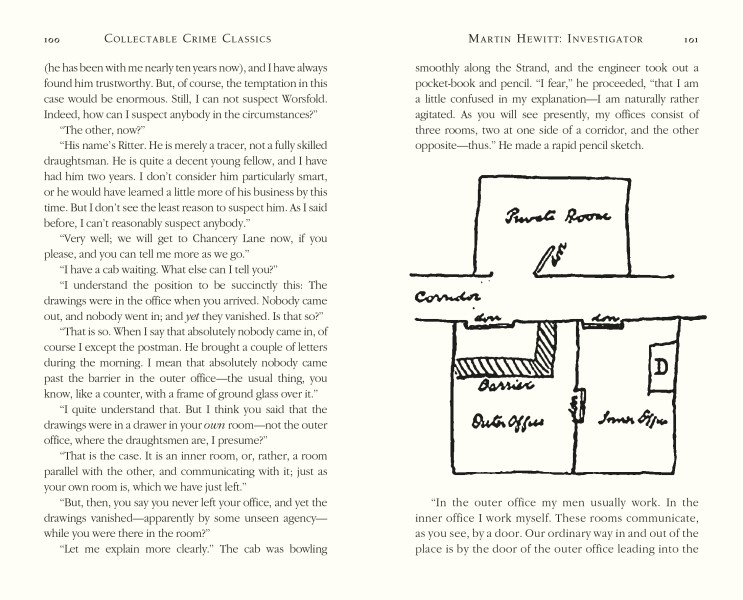 100
COLLECTABLE CRIME CLASSICS
(he has been with me nearly ten years now), and I have always
found him trustworthy. But, of course, the temptation in this
case would be enormous. Still, I can not suspect Worsfold.
Indeed, how can I suspect anybody in the circumstances?”
“The other, now?”
“His name’s Ritter. He is merely a tracer, not a fully skilled
draughtsman. He is quite a decent young fellow, and I have
had him two years. I don’t consider him particularly smart,
or he would have learned a little more of his business by this
time. But I don’t see the least reason to suspect him. As I said
before, I can’t reasonably suspect anybody.”
“Very well; we will get to Chancery Lane now, if you
please, and you can tell me more as we go.”
“I have a cab waiting. What else can I tell you?”
“I understand the position to be succinctly this: The
drawings were in the office when you arrived. Nobody came
out, and nobody went in; and yet they vanished. Is that so?”
“That is so. When I say that absolutely nobody came in, of
course I except the postman. He brought a couple of letters
during the morning. I mean that absolutely nobody came
past the barrier in the outer office—the usual thing, you
know, like a counter, with a frame of ground glass over it.”
“I quite understand that. But I think you said that the
drawings were in a drawer in your own room—not the outer
office, where the draughtsmen are, I presume?”
“That is the case. It is an inner room, or, rather, a room
parallel with the other, and communicating with it; just as
your own room is, which we have just left.”
“But, then, you say you never left your office, and yet the
drawings vanished—apparently by some unseen agency—
while you were there in the room?”
“Let me explain more clearly.” The cab was bowling
MARTIN HEWITT: INVESTIGATOR
101
smoothly along the Strand, and the engineer took out a
pocket-book and pencil. “I fear,” he proceeded, “that I am
a little confused in my explanation—I am naturally rather
agitated. As you will see presently, my offices consist of
three rooms, two at one side of a corridor, and the other
opposite—thus.” He made a rapid pencil sketch.
Private Room
Corridor
door
door
Barrier
D
door
Outer Office
Inner Office
“In the outer office my men usually work. In the
inner office I work myself. These rooms communicate,
as you see, by a door. Our ordinary way in and out of the
place is by the door of the outer office leading into the